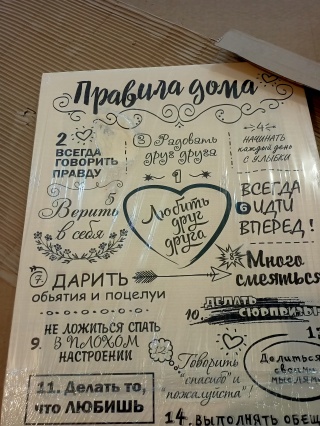 Правила дома
1
Любить
друг
друга
2
ВСЕГДА
ГОВОРИТЬ
ПРАВДУ
3 Радовать
друг друга
4
НАЧИНАТЬ
каждый день
С УЛЫБКИ
5
Верить
в себя
ВСЕГДА
6 ИДТИ
ВПЕРЕД!
7 ДАРИТЬ
объятия и поцелуи
8 Много
смеяться
НЕ ЛОЖИТЬСЯ СПАТЬ
9. В ПЛОХОМ
НАСТРОЕНИИ
10. ДЕЛАТЬ
СЮРПРИЗЫ
11. Делать то,
что ЛЮБИШЬ
12
Говорить
"спасибо" и
"пожалуйста"!
Делиться
своими
мыслями
14. ВЫПОЛНЯТЬ ОБЕЩ